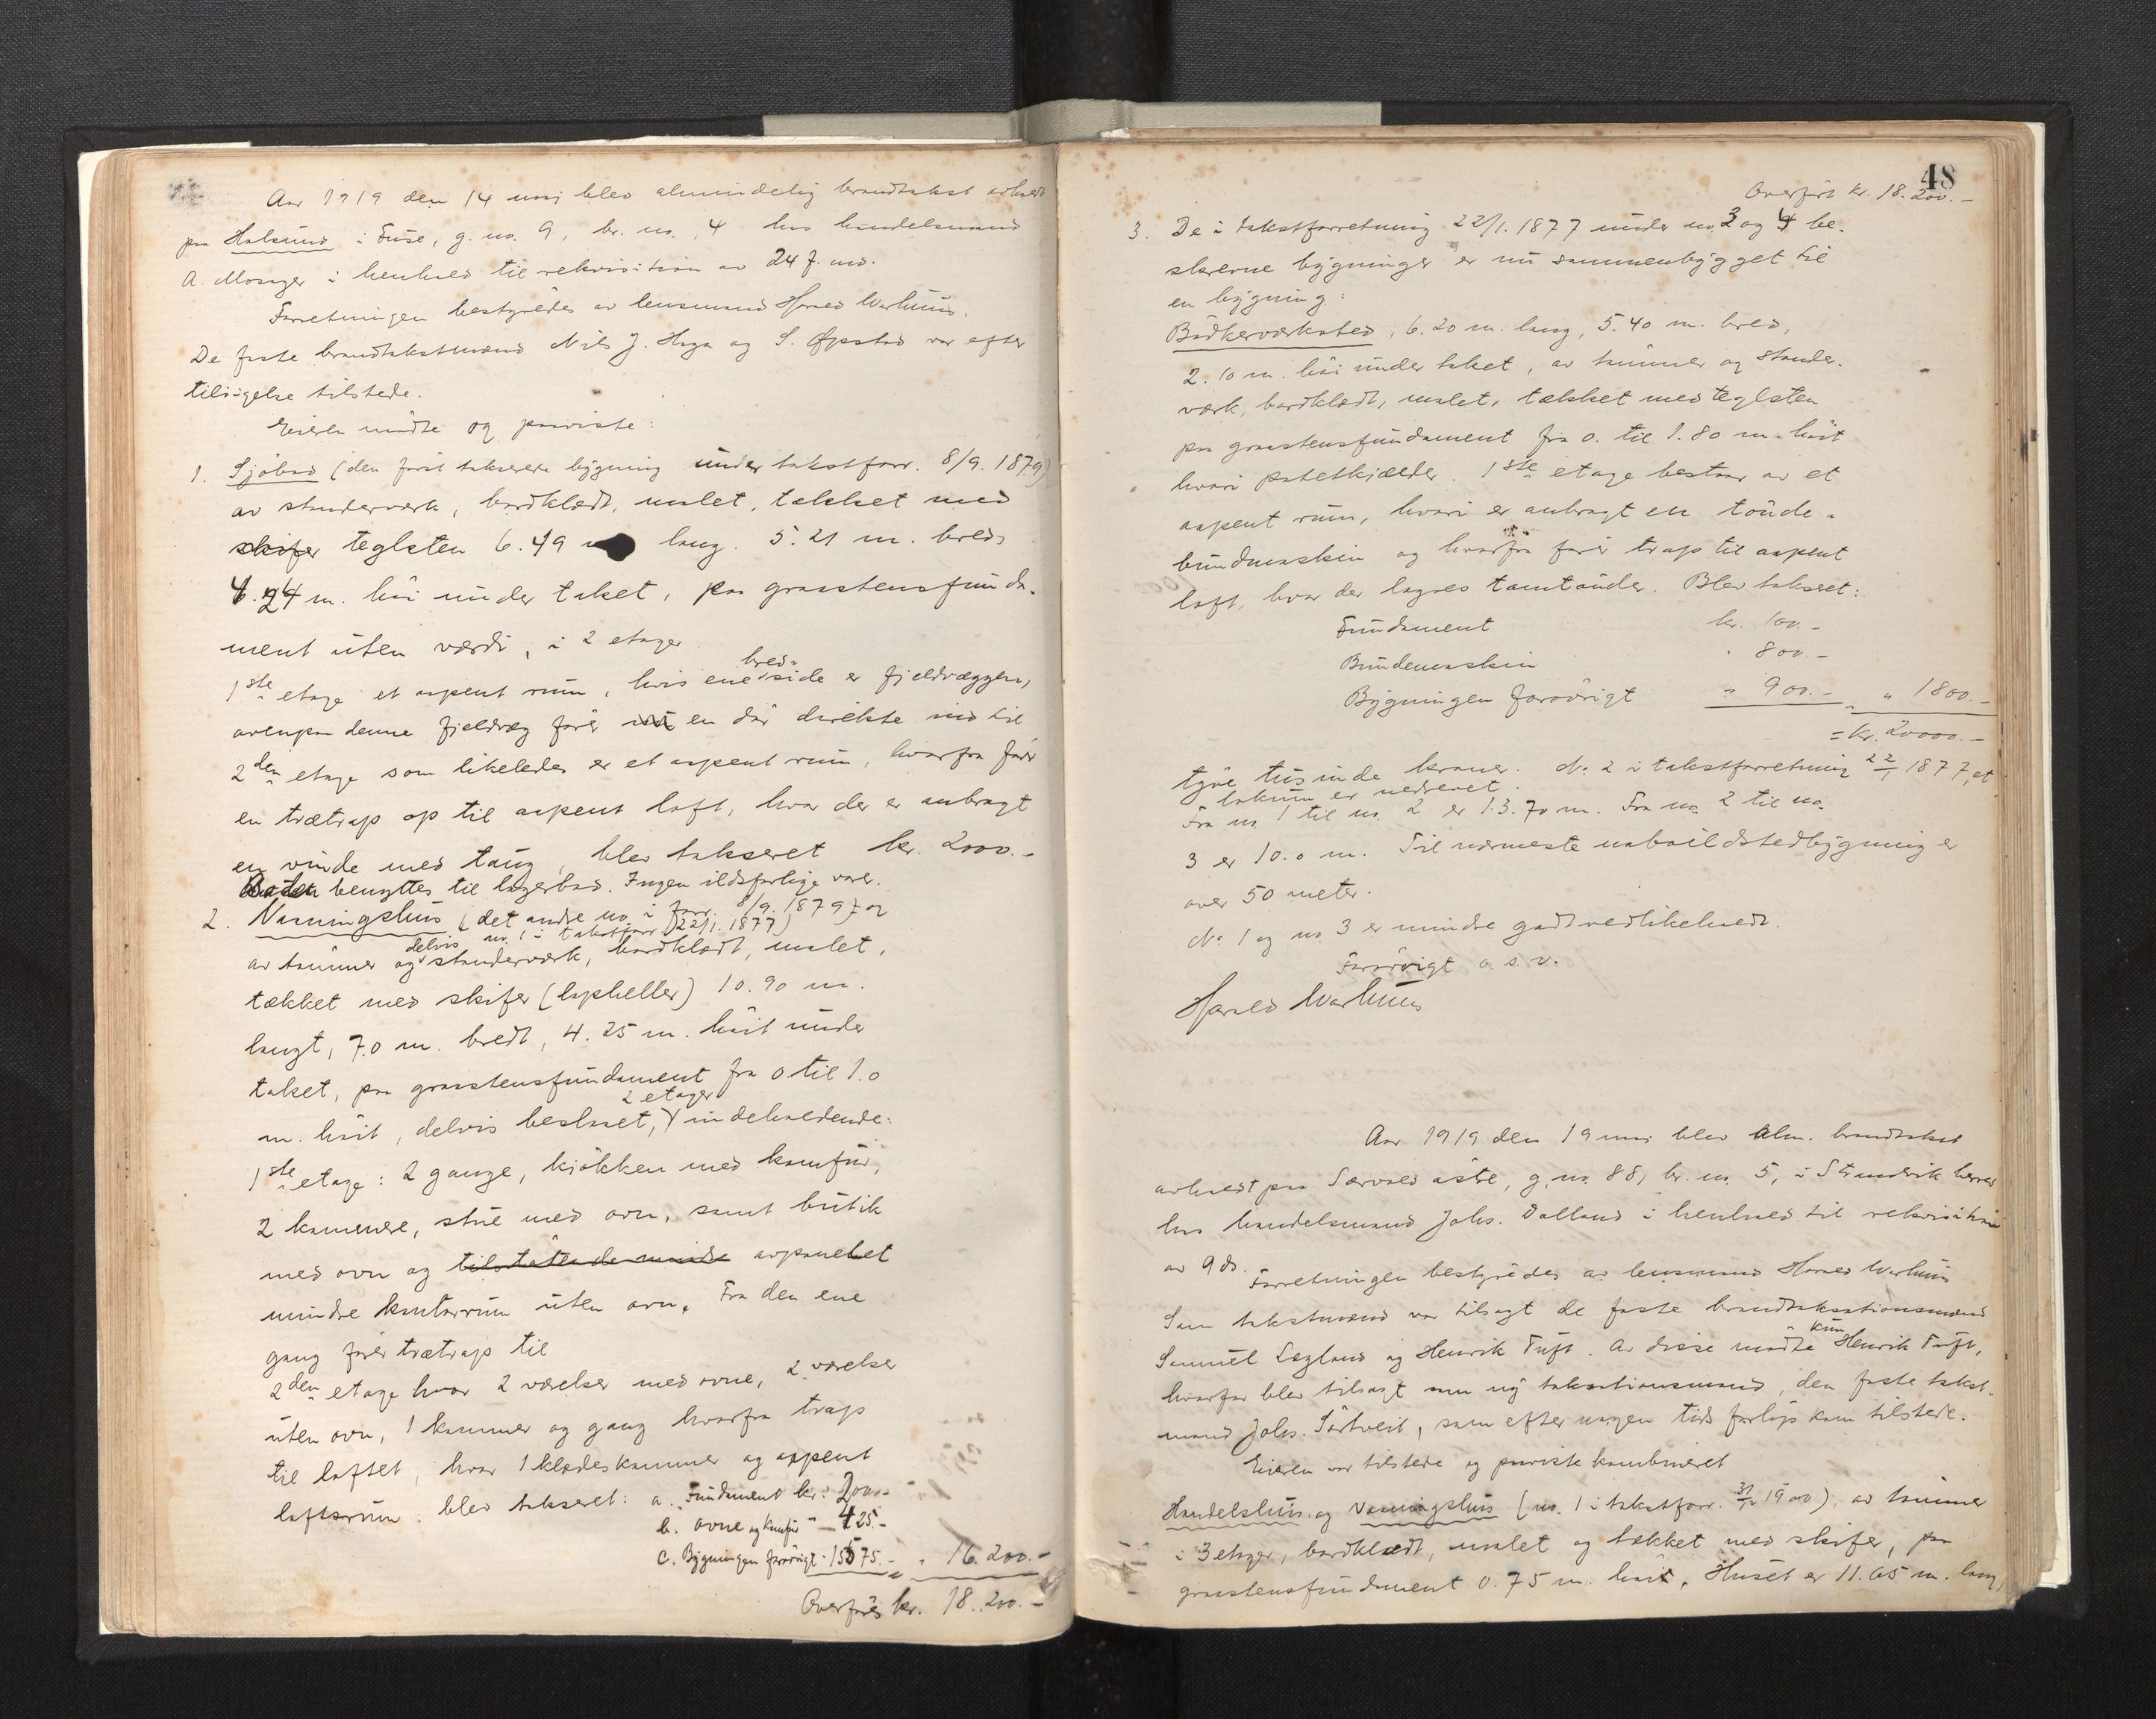 Aar 1919 den 14 mai blev almindelig brandtakst avholdt
paa Holsund i Fuse, g. no. 9, br. no. 4 hos handelsmand
A. Mosager i henhold til rekvisition av 24 f. md.
Forretningen bestyredes av lensmand Harald Warhuus.
De faste brandtakstmænd Nils J. Haga og S. Øpstad var efter
tilsigelse tilstede.
Eieren mødte og paaviste:
1. Sjöbod (den först takserede bygning under takstforr. 8/9. 1879)
av stenderverk, bordklædt, malet, tækket med
skifer teglsten 6.49 m lang. 5.21 m. bred,
4.24 m. höi under taket, paa graastensfunda-
ment uten værdi, i 2 etager.
1ste etage et aapent rum, hvis ene bred-side er fjeldvæggen,
ovenpaa denne fjeldvæg förer en dör direkte ind til
2den etage som likeledes er et aapent rum, hvorfra förer
en trætrap op til aapent loft, hvor der er anbragt
en vinde med taug, blev taksseret kr. 2000.-
Boden benyttes til lagerbod. Ingen ildsfarlige varer.
2. Vaaningshus (det andre no. i forr. 8/9. 1879) og
no. 1 i takstforr. 22/1. 1877)
av tømmer og delvis stenderværk, bordklædt, malet,
tækket med skifer (lapheller) 10.90 m.
langt, 7.0 m. bredt, 4.25 m. höit under
taket, paa graastensfundament fra 0. til 1.0
m. höit, delvis beslaaet, 2 etager indeholdende:
1ste etage: 2 gange, kjökken med komfur,
2 kammere, stue med ovn, samt butik
med ovn og tilstötende mindre avpanelet
mindre kontorrum uten ovn. Fra den ene
gang förer trætrap til
2den etage hvor 2 værelser med ovne, 2 værelser
uten ovn, 1 kammer og gang hvorfra trap
til loftet, hvor 1 klædeskammer og aapent
loftsrum. blev takseret: a. Fundament kr. 200.-
b. ovne og komfur " 425.-
c. Bygningen forövrigt " 15575.- " 16.200.-
Overföres kr. 18.200.-
48
Overfört kr. 18.200.-
3. De i takstforretning 22/1. 1877 under no. 3 og 4 be-
skrevne bygninger er nu sammenbygget til
en bygning:
Bödkerværksted, 6.20 m. lang, 5.40 m. bred,
2.10 m. höi under taket, av tømmer og stender-
værk, bordklædt, malet, tækket med teglsten
paa graastensfundament fra 0. til 1.80 m. höit
hvori potetkjelder. 1ste etage bestaar av et
aapent rum, hvori er anbragt en tönde-
bundmaskin og hvorfra förer trap til aapent
loft, hvor der lagres tomtönder. Blev takseret:
Fundament kr. 100.-
Bundmaskin " 800.-
Bygningen forövrigt " 900.- " 1800.-
= kr. 20000.-
tyve tusinde kroner. No. 2 i takstforretning 22/1 1877, et
lokum er nedrevet.
Fra no. 1 til no. 2 er 13.70 m. Fra no. 2 til no.
3 er 10.0 m. Til nærmeste naboildstedbygning er
over 50 meter.
No. 1 og no. 3 er mindre godt vedlikeholdt.
Forövrigt o. s. v.
Harald Warhuus
Aar 1919 den 19 mai blev alm. brandtakst
avholdt paa Særvold östre, g. no. 88, br. no. 5, i Strandvik herred
hos handelsmand Johs. Dalland i henhold til rekvisition
av 9 ds.
Forretningen bestyredes av lensmand Harald Warhuus
Som takstmænd var tilsagt de faste brandtakstationsmænd
Samuel Légland og Henrik Tuft. Av disse mødte kun Henrik Tuft,
hvorfor blev tilsagt som ny takstationsmand, den faste takst-
mand Johs. Sörtveit, som efter nogen tids forlöp kom tilstede.
Eieren var tilstede og paaviste kombineret
Handelshus og vaaningshus (no. 1 i takstforr. 31/12 1900), av tømmer
i 3 etager, bordklædt, malet og tækket med skifer, paa
graastensfundament 0.75 m. höit. Huset er 11.65 m. lang,